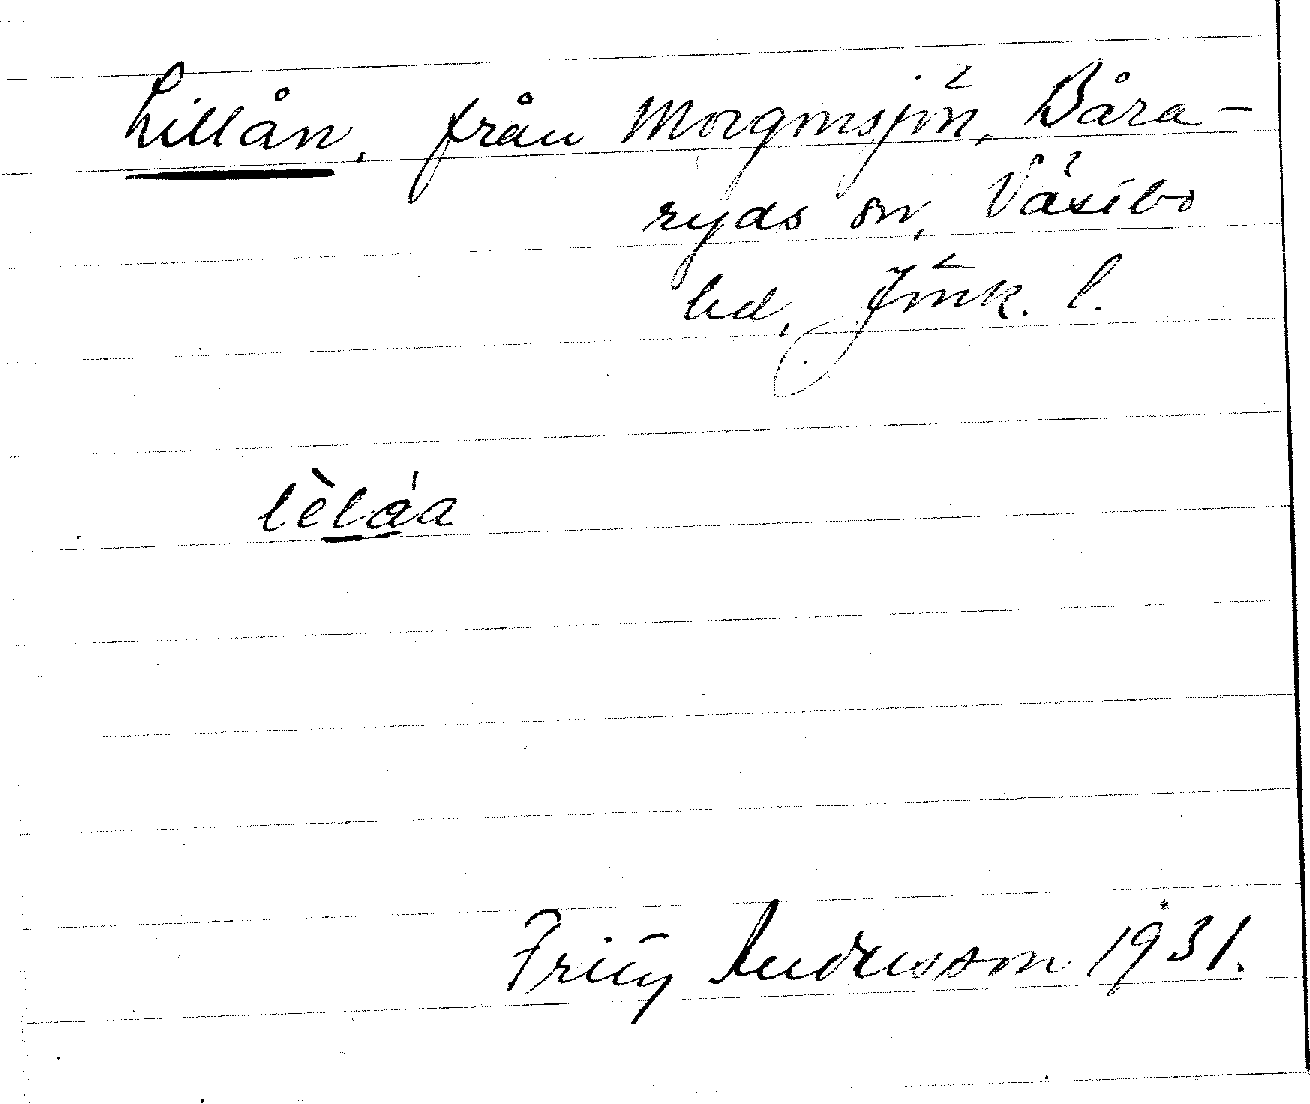 Lillån, från Morgonsjön, Båra-
ryds sn, Västbo
hd, Jönk. l.
lèláa
Fritz Andersson 1931.